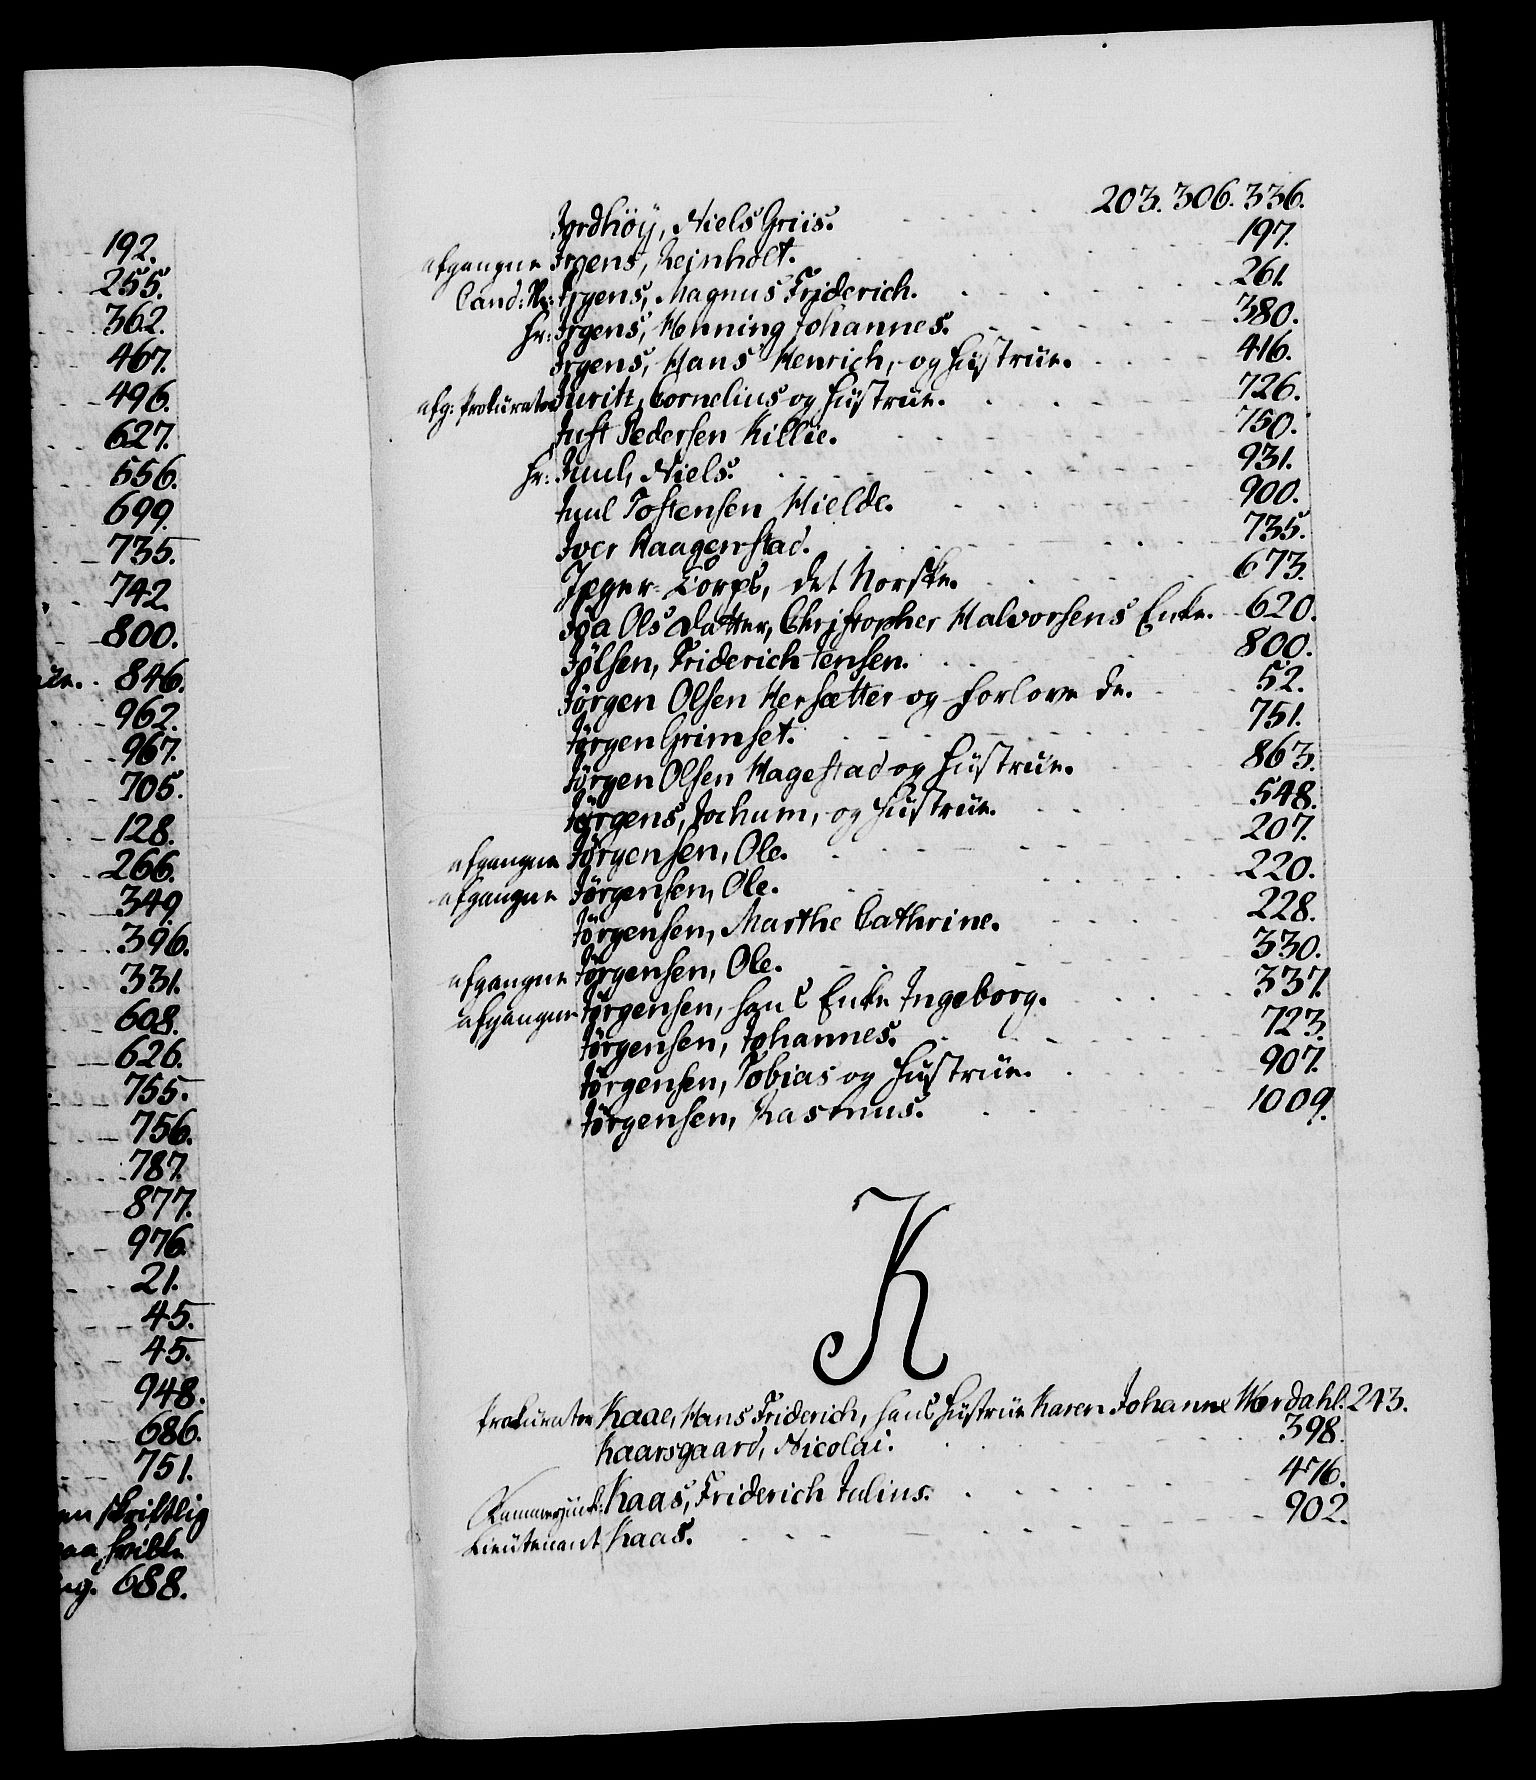 192.
255.
362.
467.
496.
627.
556.
699.
735.
742.
800.
846.
962.
967.
705.
128.
266.
349.
396.
331.
608.
626.
755.
756.
787.
877.
976.
21.
45.
45.
948.
686.
751.
skriftlig
688.
Jordhöÿ, Niels Griis. 203. 306. 336.
afgangne Irgens, Reinholt. 197.
Cand: Irgens, Magnus Friderich. 261.
Hr: Irgens, Henning Johannes. 380.
Irgens, Hans Henrich, og Hustrue. 416.
afg: Prokurator Juritz, Cornelius og Hustrue. 726.
Just Pedersen Killie. 750.
Hr: Juul, Niels. 931.
Juul Tostensen Hielde. 900.
Iver Haagenstad. 735.
Jæger-Corps, det Norske. 673.
Olsdatter, Christopher Halvorsens Enke. 620.
Jölsen, Friderich Jensen. 800.
Jörgen Olsen Hersætter og Forlovede. 52.
Jörgen Grimset. 751.
Jörgen Olsen Hagestad og Hustrue. 863.
Jörgens, Jochum, og Hustrue. 548.
afgangne Jörgensen, Ole. 207.
afgangne Jörgensen, Ole. 220.
Jörgensen, Marthe Cathrine. 228.
afgangne Jörgensen, Ole. 330.
afgangne Jörgensen, hans Enke Ingeborg. 337.
Jörgensen, Johannes. 723.
Jörgensen, Tobias og Hustrue. 907.
Jörgensen, Rasmus. 1009.
K
Prokurator Kaae, Hans Friderich, hans Hustrue Karen Johanne Werdahl. 243.
Kaarsgaard, Nicolai. 398.
Kammerjunk: Kaas, Friderich Julius. 476.
Lieutenant Kaas. 902.